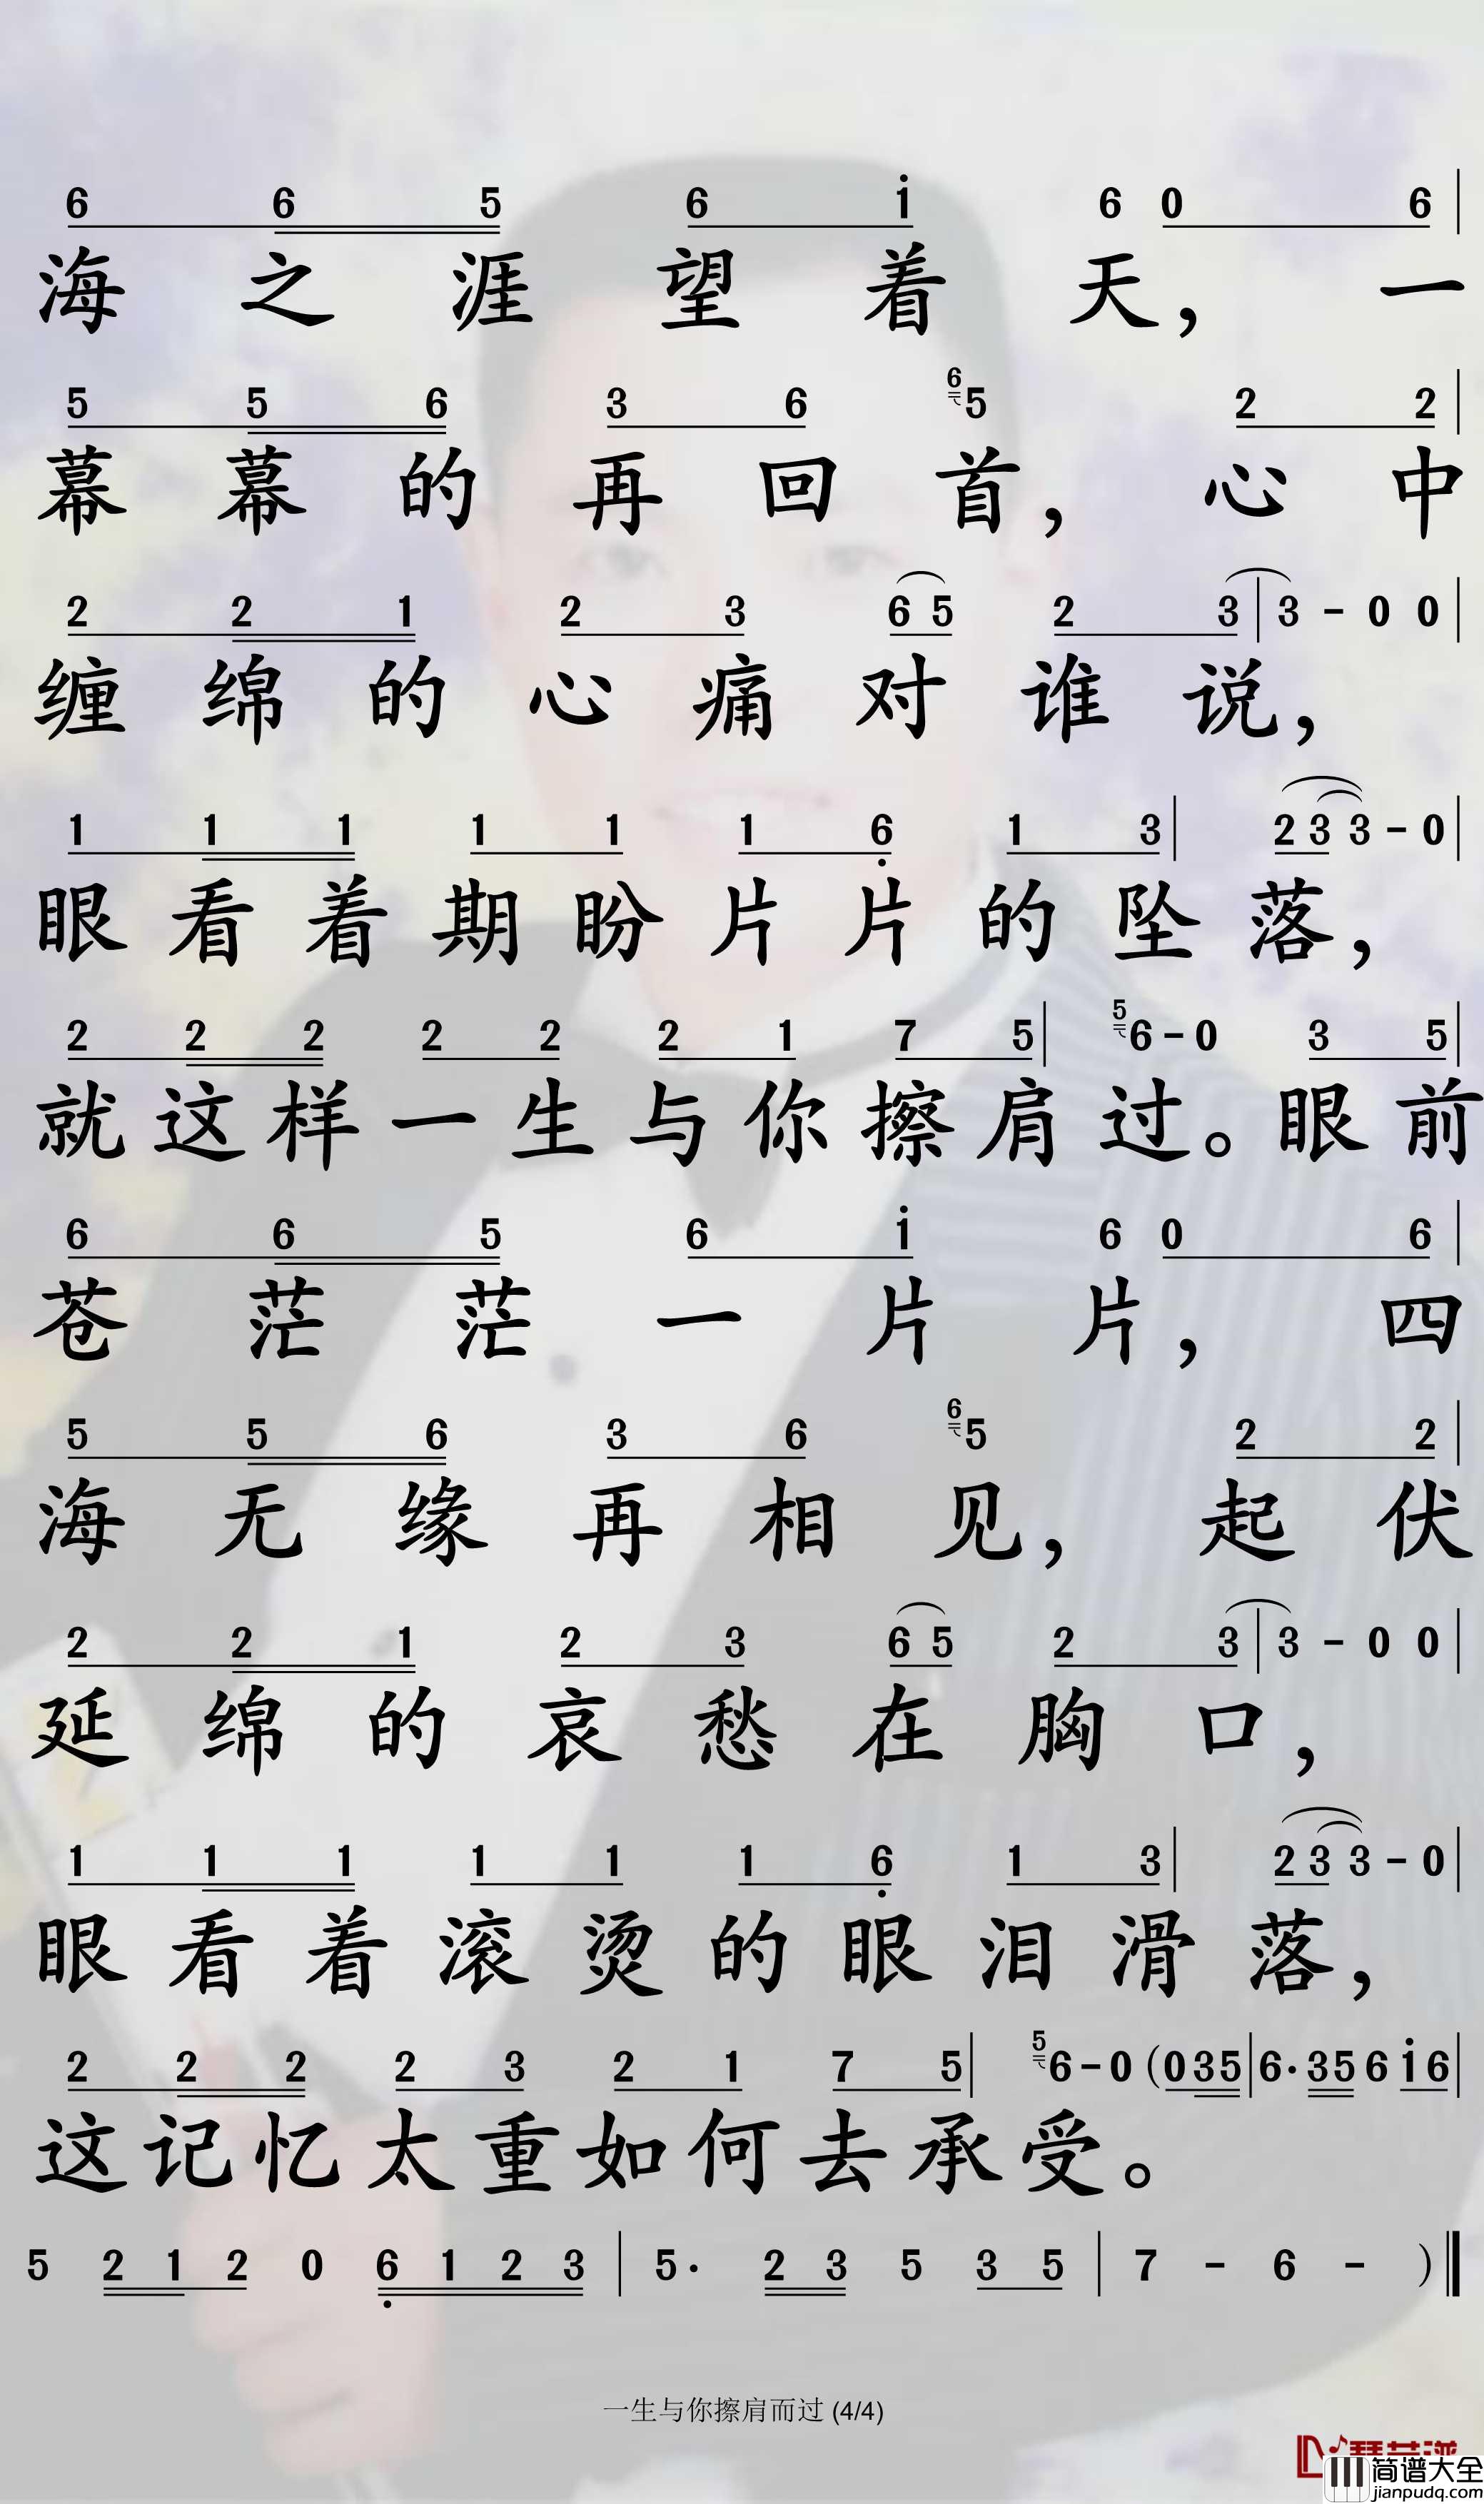 6 6 5 6 i 6 0 6
海之涯望着天，一
5 5 6 3 6 6 5 2 2
幕幕的再回首，心中
2 2 1 2 3 6 5 2 3 | 3 - 0 0 |
缠绵的心痛对谁说，
1 1 1 1 1 1 6 1 3 | 2 3 3 - 0 |
眼看着期盼片片的坠落，
2 2 2 2 2 2 1 7 5 | 5 6 - 0 3 5 |
就这样一生与你擦肩过。眼前
6 6 5 6 i 6 0 6 |
苍茫茫一片片，四
5 5 6 3 6 6 5 2 2 |
海无缘再相见，起伏
2 2 1 2 3 6 5 2 3 | 3 - 0 0 |
延绵的哀愁在胸口，
1 1 1 1 1 1 6 1 3 | 2 3 3 - 0 |
眼看着滚烫的眼泪滑落，
2 2 2 2 3 2 1 7 5 | 5 6 - 0 (0 3 5 | 6 · 3 5 6 i 6 |
这记忆太重如何去承受。
5 2 1 2 0 6 1 2 3 | 5 · 2 3 5 3 5 | 7 - 6 - )
一生与你擦肩而过 (4/4)
简谱大全
jianpudq.com